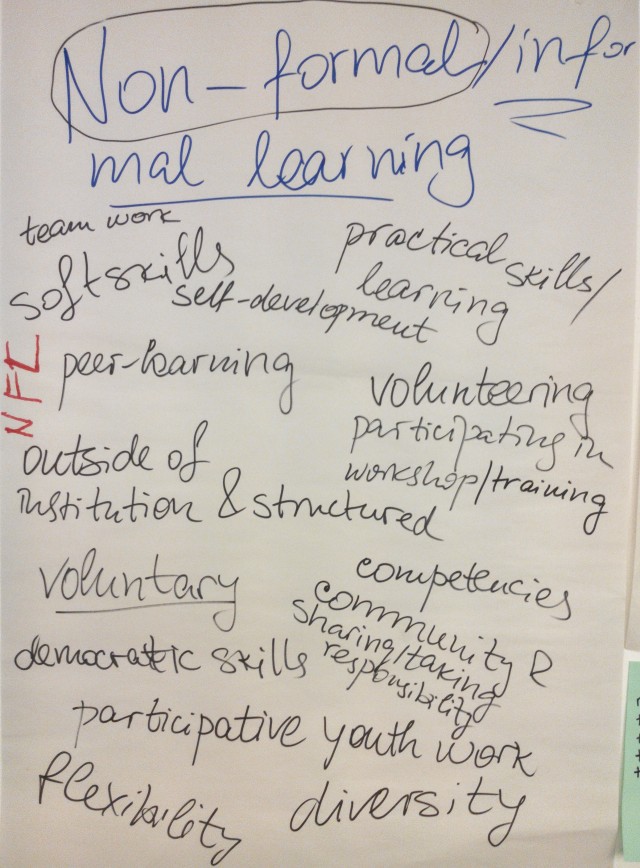 Non-formal/infor
mal learning
team work
soft skills
self-development
practical skills/
learning
NFL
peer-learning
volunteering
participating in
workshop/training
outside of
institution & structured
voluntary
competencies
community R
sharing/taking
responsibility
democratic skills
participative youth work
flexibility
diversity